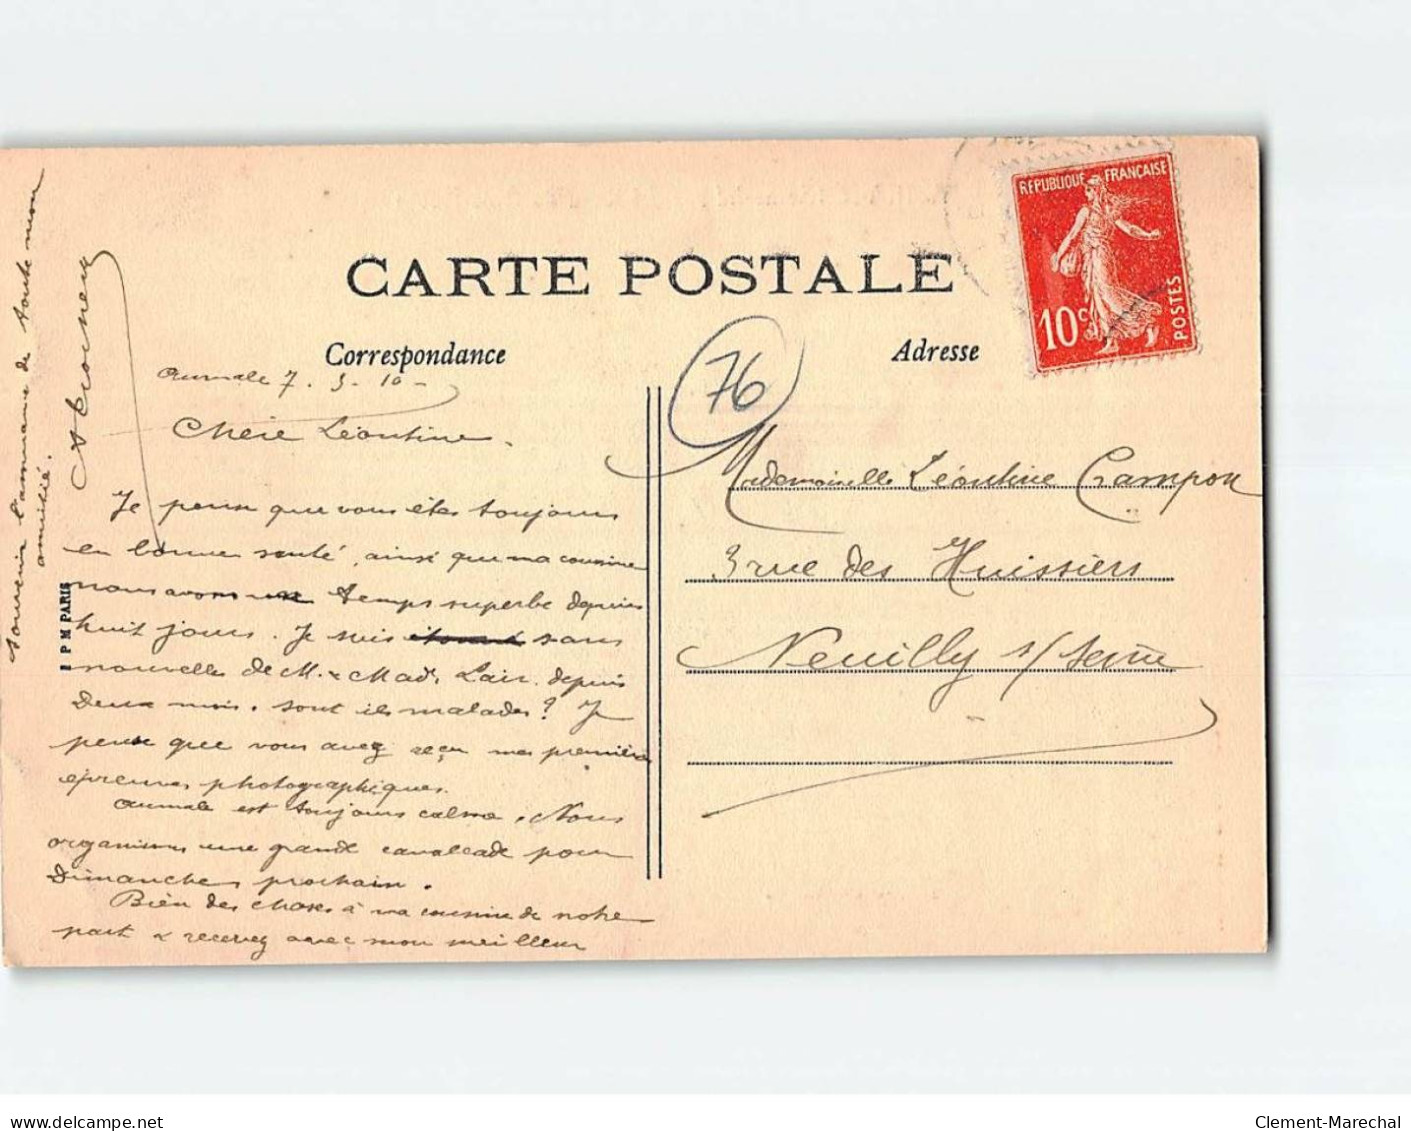 CARTE POSTALE
Correspondance
Adresse
REPUBLIQUE FRANÇAISE
10c
POSTES
76
Aumale 7. 5. 10 -
Chère Léontine.
Je pense que vous êtes toujours
en bonne santé, ainsi que ma cousine
nous avons un temps superbe depuis
huit jours. Je suis sans
nouvelles de M. & Mad. Lair. depuis
Deux mois. sont ils malades? Je
pense que vous avez reçu mes premières
épreuves photographiques.
Aumale est toujours calme. Nous
organisons une grande cavalcade pour
Dimanche prochain.
Bien des choses à ma cousine de notre
part & recevez avec mon meilleur
souvenir l'assurance de toute mon
amitié.
Mademoiselle Léontine Crampon
3 rue des Huissiers
Neuilly s/ Seine
I P M PARIS
delcampe.net
Clement-Marechal